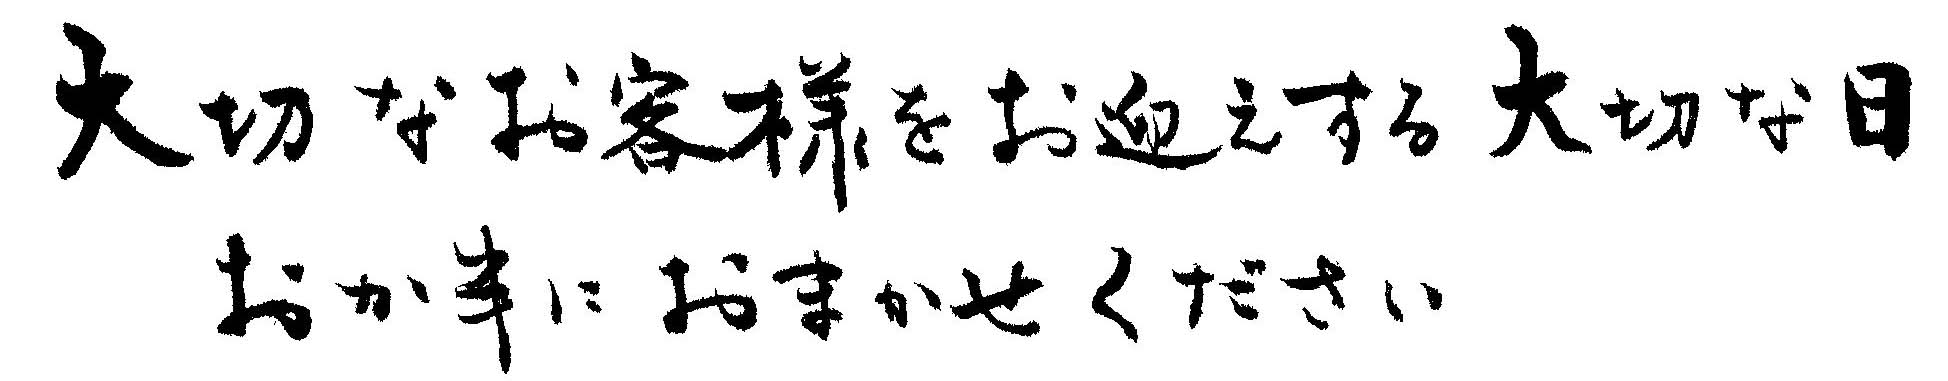 大切なお客様をお迎えする大切な日
おか半におまかせください